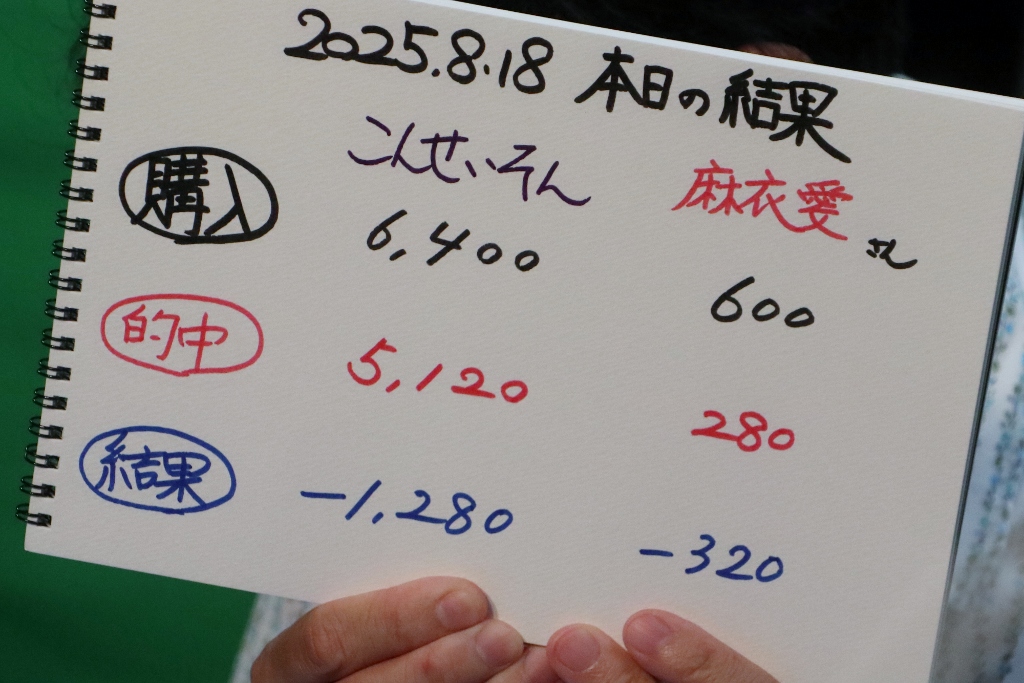 2025.8.18 本日の結果
こんせいそん 麻衣愛さん
購入 6,400 600
的中 5,120 280
結果 -1,280 -320